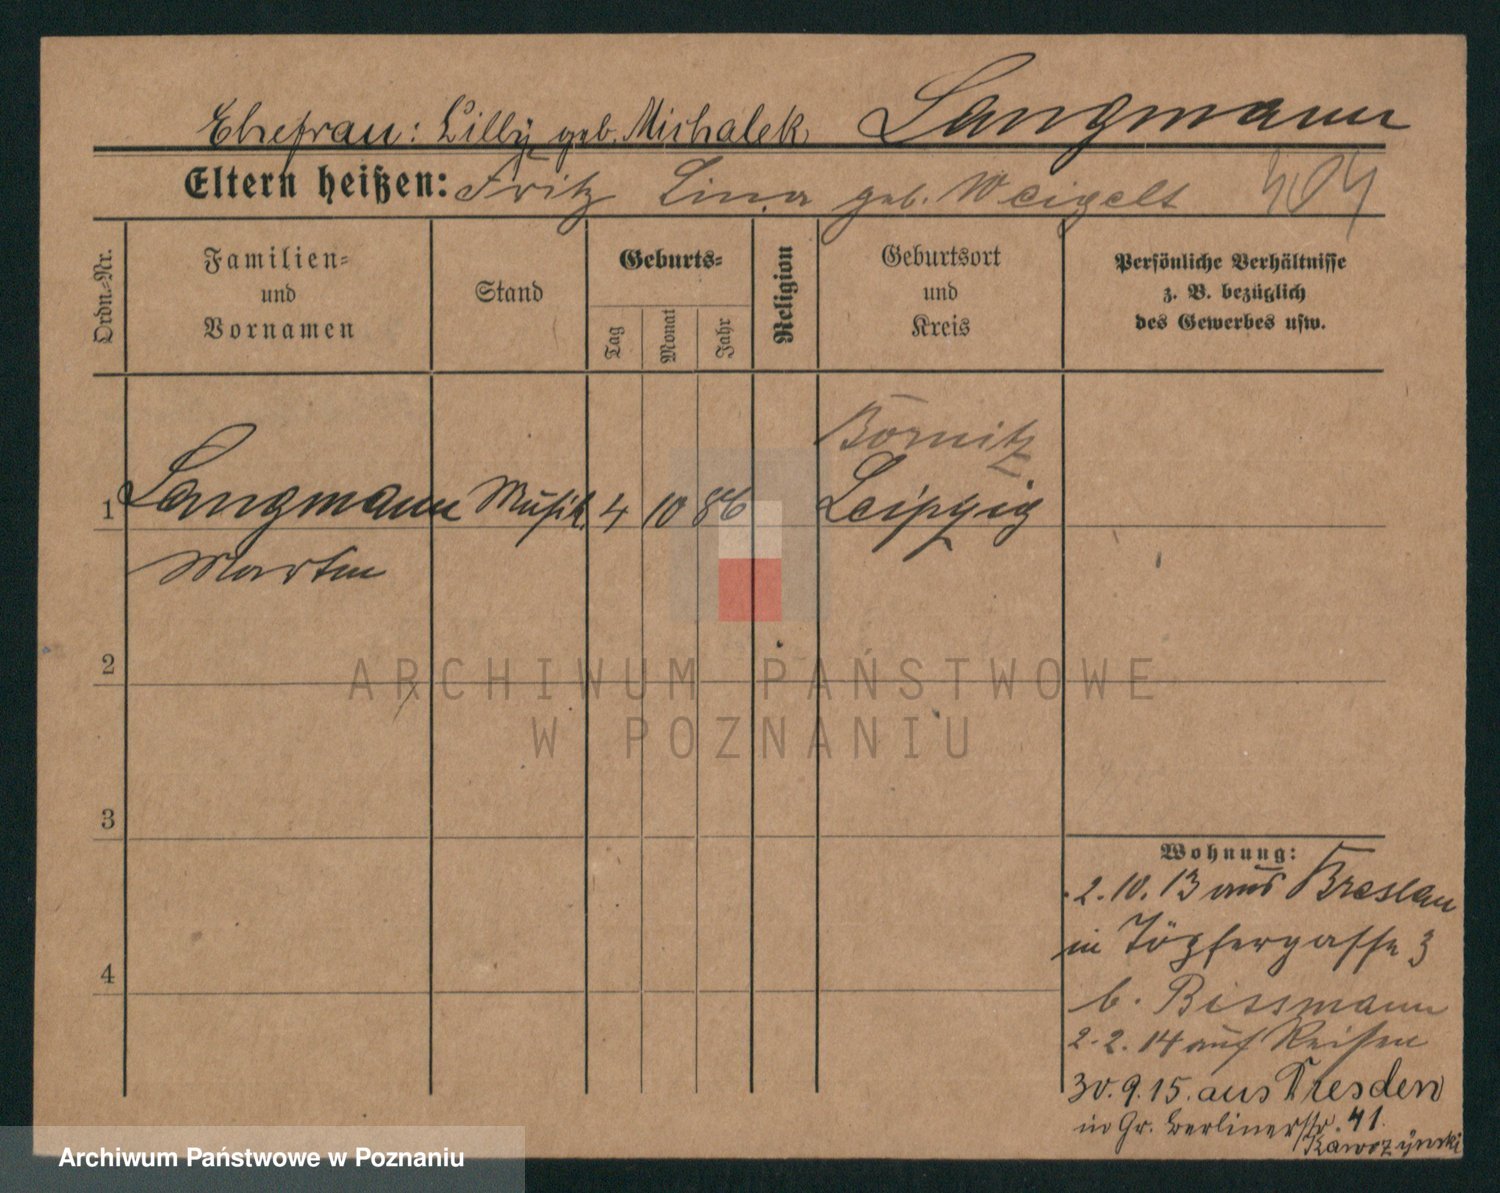 Ehefrau: Lilly geb. Michalek Langmann
Eltern heißen: Fritz Lina geb. Weigelt
Ordn.-Nr.
Familien-
und
Vornamen
Stand
Geburts-
Tag
Monat
Jahr
Religion
Geburtsort
und
Kreis
Persönliche Verhältnisse
z. B. bezüglich
des Gewerbes usw.
Börnitz
1 Langmann Musik. 4 10 86 Leipzig
Martin
2
ARCHIWUM PAŃSTWOWE
W POZNANIU
3
Wohnung:
2.10.13 aus Breslau
in Töpfergasse 3
4
b. Bissmann
2.2.14 auf Reisen
30.9.15. aus Dresden
in Gr. Berlinerstr. 41.
Archiwum Państwowe w Poznaniu